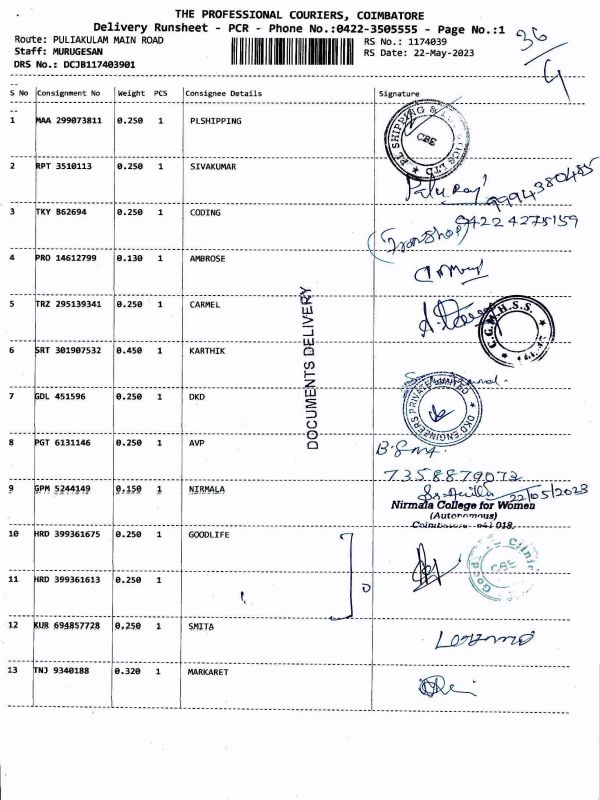 THE PROFESSIONAL COURIERS, COIMBATORE
Delivery Runsheet - PCR - Phone No.:0422-3505555 - Page No.:1
Route: PULIAKULAM MAIN ROAD
RS No.: 1174039
Staff: MURUGESAN
RS Date: 22-May-2023
DRS No.: DCJB117403901
36/4
S No Consignment No Weight PCS Consignee Details Signature
1 MAA 299073811 0.250 1 PLSHIPPING
CBE
2 RPT 3510113 0.250 1 SIVAKUMAR
9994380485
3 TKY 862694 0.250 1 CODING
94224275159
4 PRO 14612799 0.130 1 AMBROSE
5 TRZ 295139341 0.250 1 CARMEL
C.G.M.H.S.S.
6 SRT 301907532 0.450 1 KARTHIK
DOCUMENTS DELIVERY
7 GDL 451596 0.250 1 DKD
DKD ENGINEERS PRIVATE LIMITED
8 PGT 6131146 0.250 1 AVP
7358879073
9 GPM 5244149 0.150 1 NIRMALA
22/05/2023
Nirmala College for Women
(Autonomous)
Coimbatore - 641 018.
10 HRD 399361675 0.250 1 GOODLIFE
Clinic
CBE
11 HRD 399361613 0.250 1
12 KUR 694857728 0.250 1 SMITA
13 TNJ 9340188 0.320 1 MARKARET